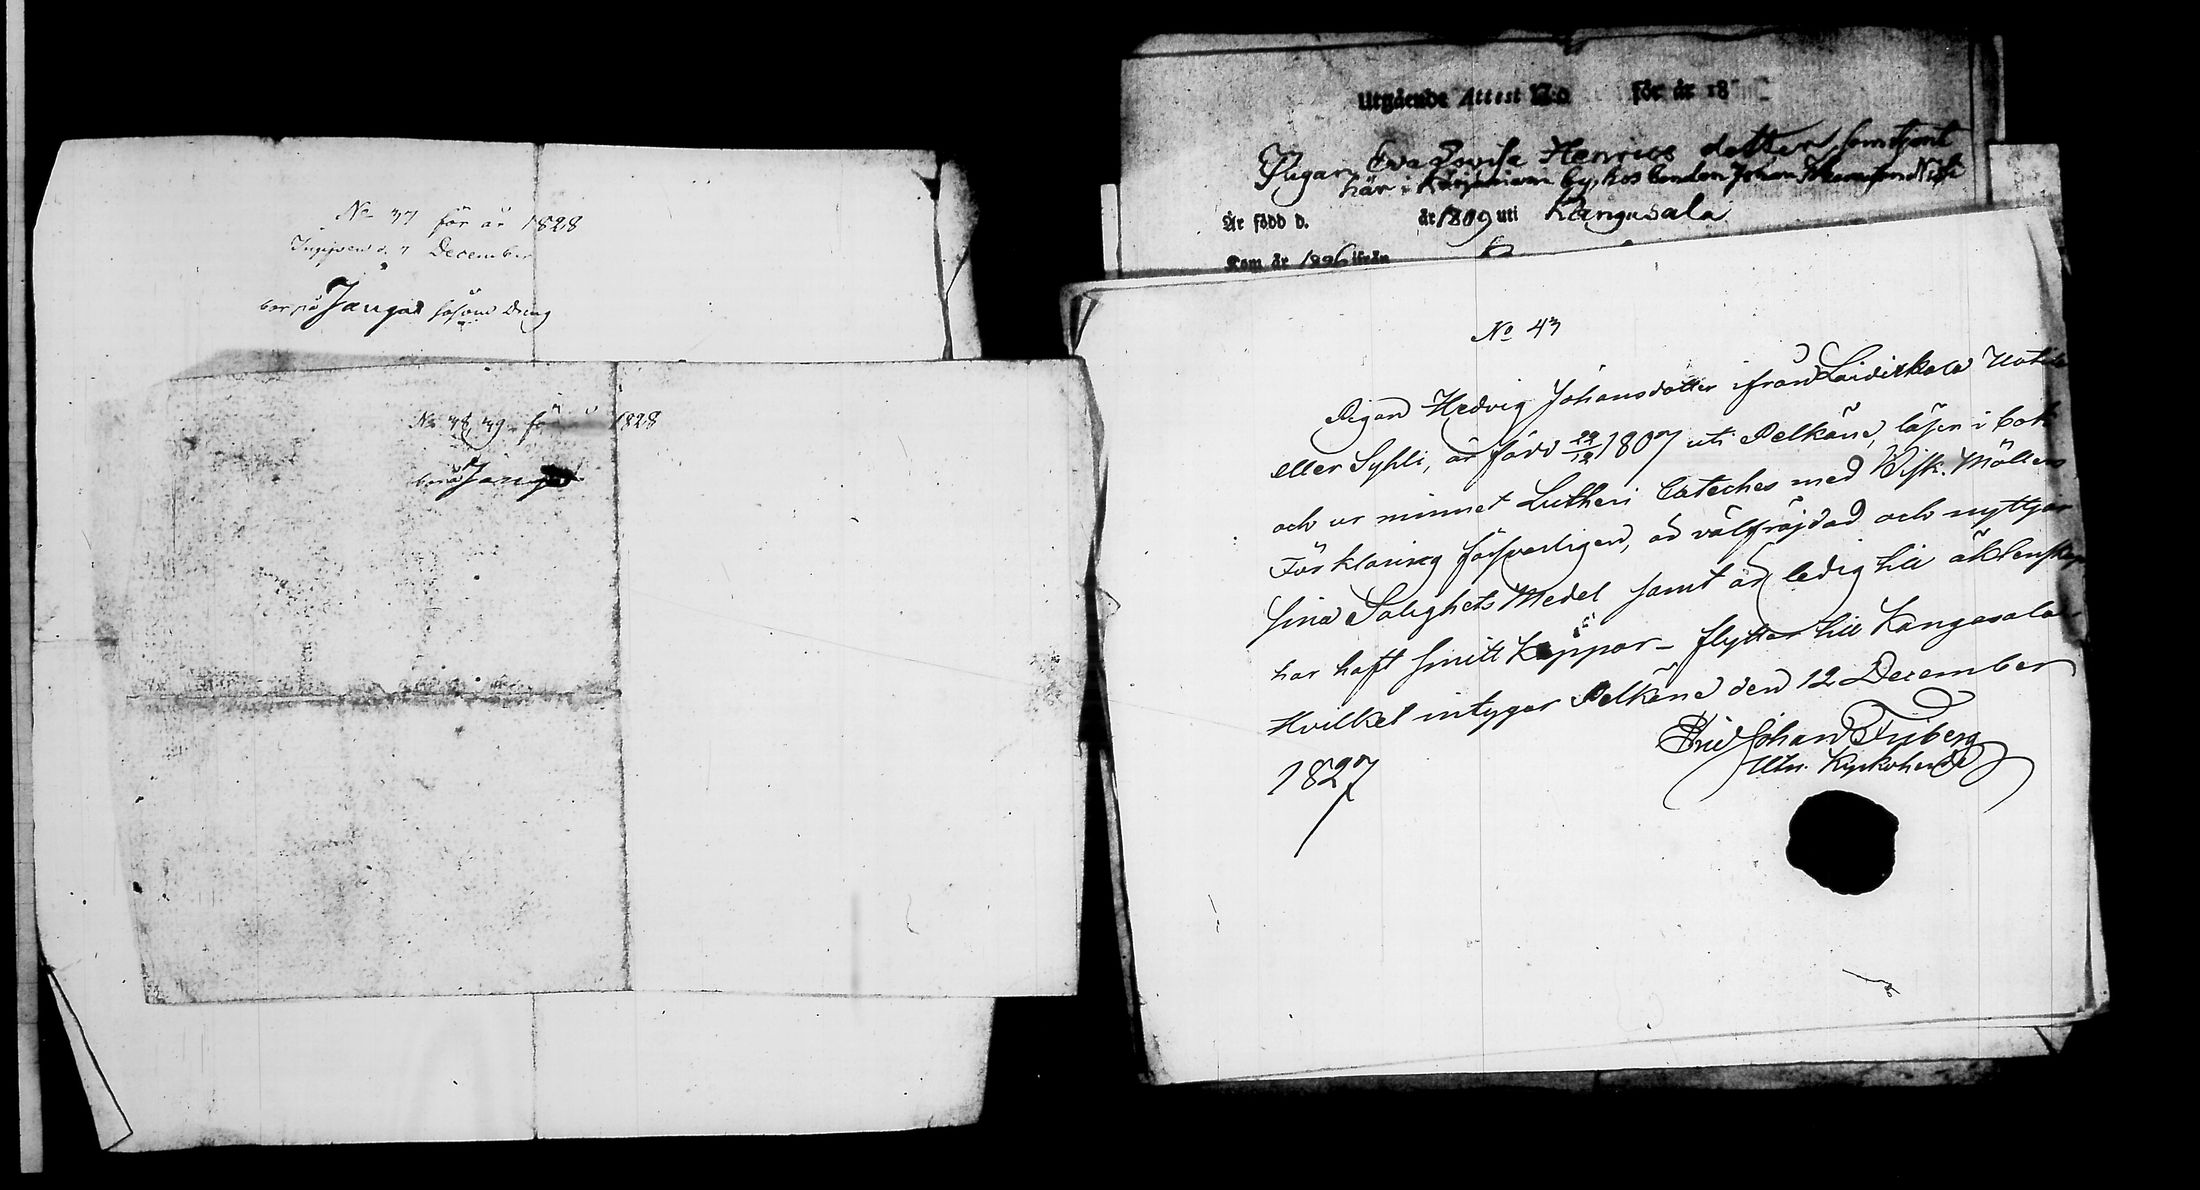 No 37 för år 1828
Ingifven d. 7 December
bor på Janga såsom Dräng
No 38, 39 för 1828
Utgående Attest No för år 18
Pigan Eva Lovisa Henrics dotter som tjent
här i by, hos bonden Johan
Är född d. år 1809 uti Kangasala
Kom år 1826 ifrån
No 43
Pigan Hedvig Johansdotter ifrån Laidikkala
eller Syhli, är född 29/12 1807 uti Pelkäne, läser i bok
och ur minnet Lutheri Cateches med Bisk. Möllers
Förklaring försvarligen, är välfräjdad och nyttjar
sina Salighets Medel samt är ledig till äktenskap
har haft smitt Koppor – flyttar till Kangasala
Hvilket intygar Pelkäne den 12 December
1827
Johan Friberg
Kyrkoherde